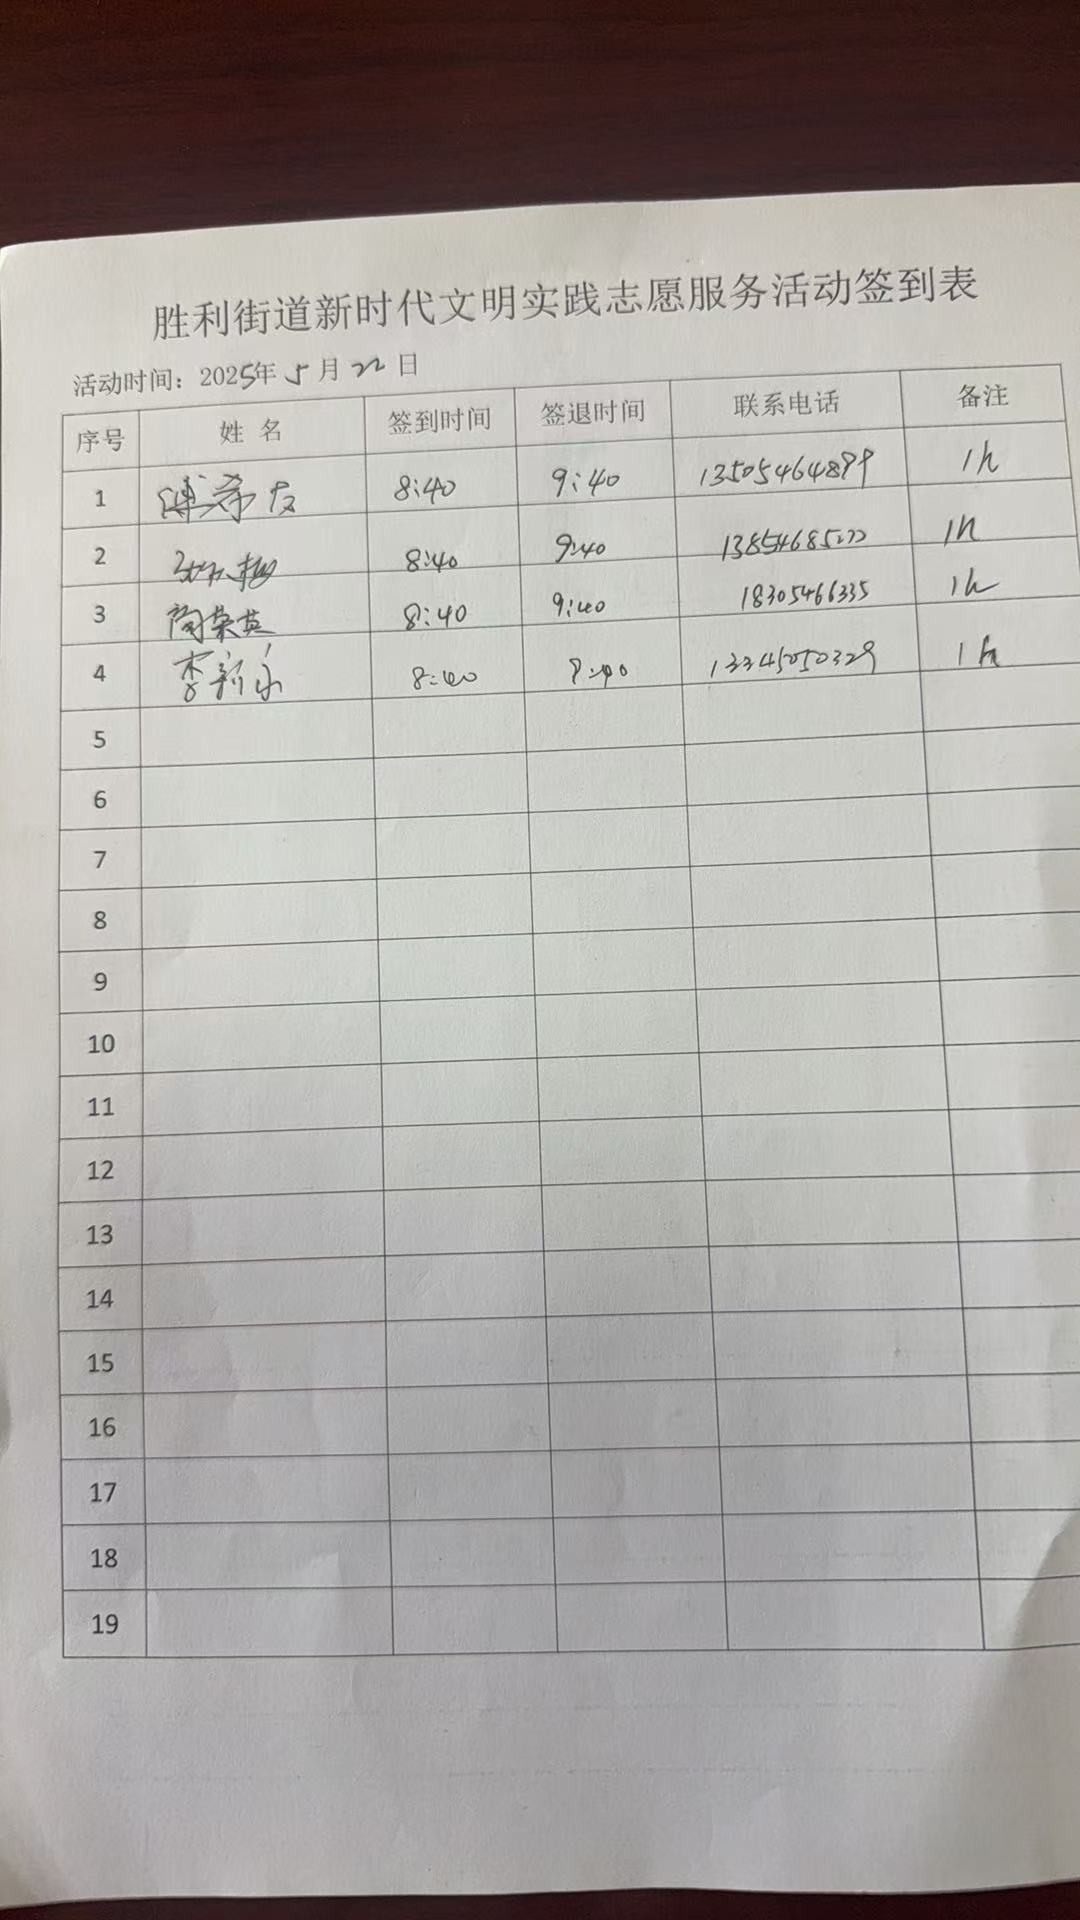 胜利街道新时代文明实践志愿服务活动签到表
活动时间：2025年5月22日
序号 姓 名 签到时间 签退时间 联系电话 备注
1 傅希友 8:40 9:40 13505464899 1h
2 8:40 9:40 1h
3 商荣英 8:40 9:40 18305466335 1h
4 李新乐 8:40 13345050329 1h
5
6
7
8
9
10
11
12
13
14
15
16
17
18
19